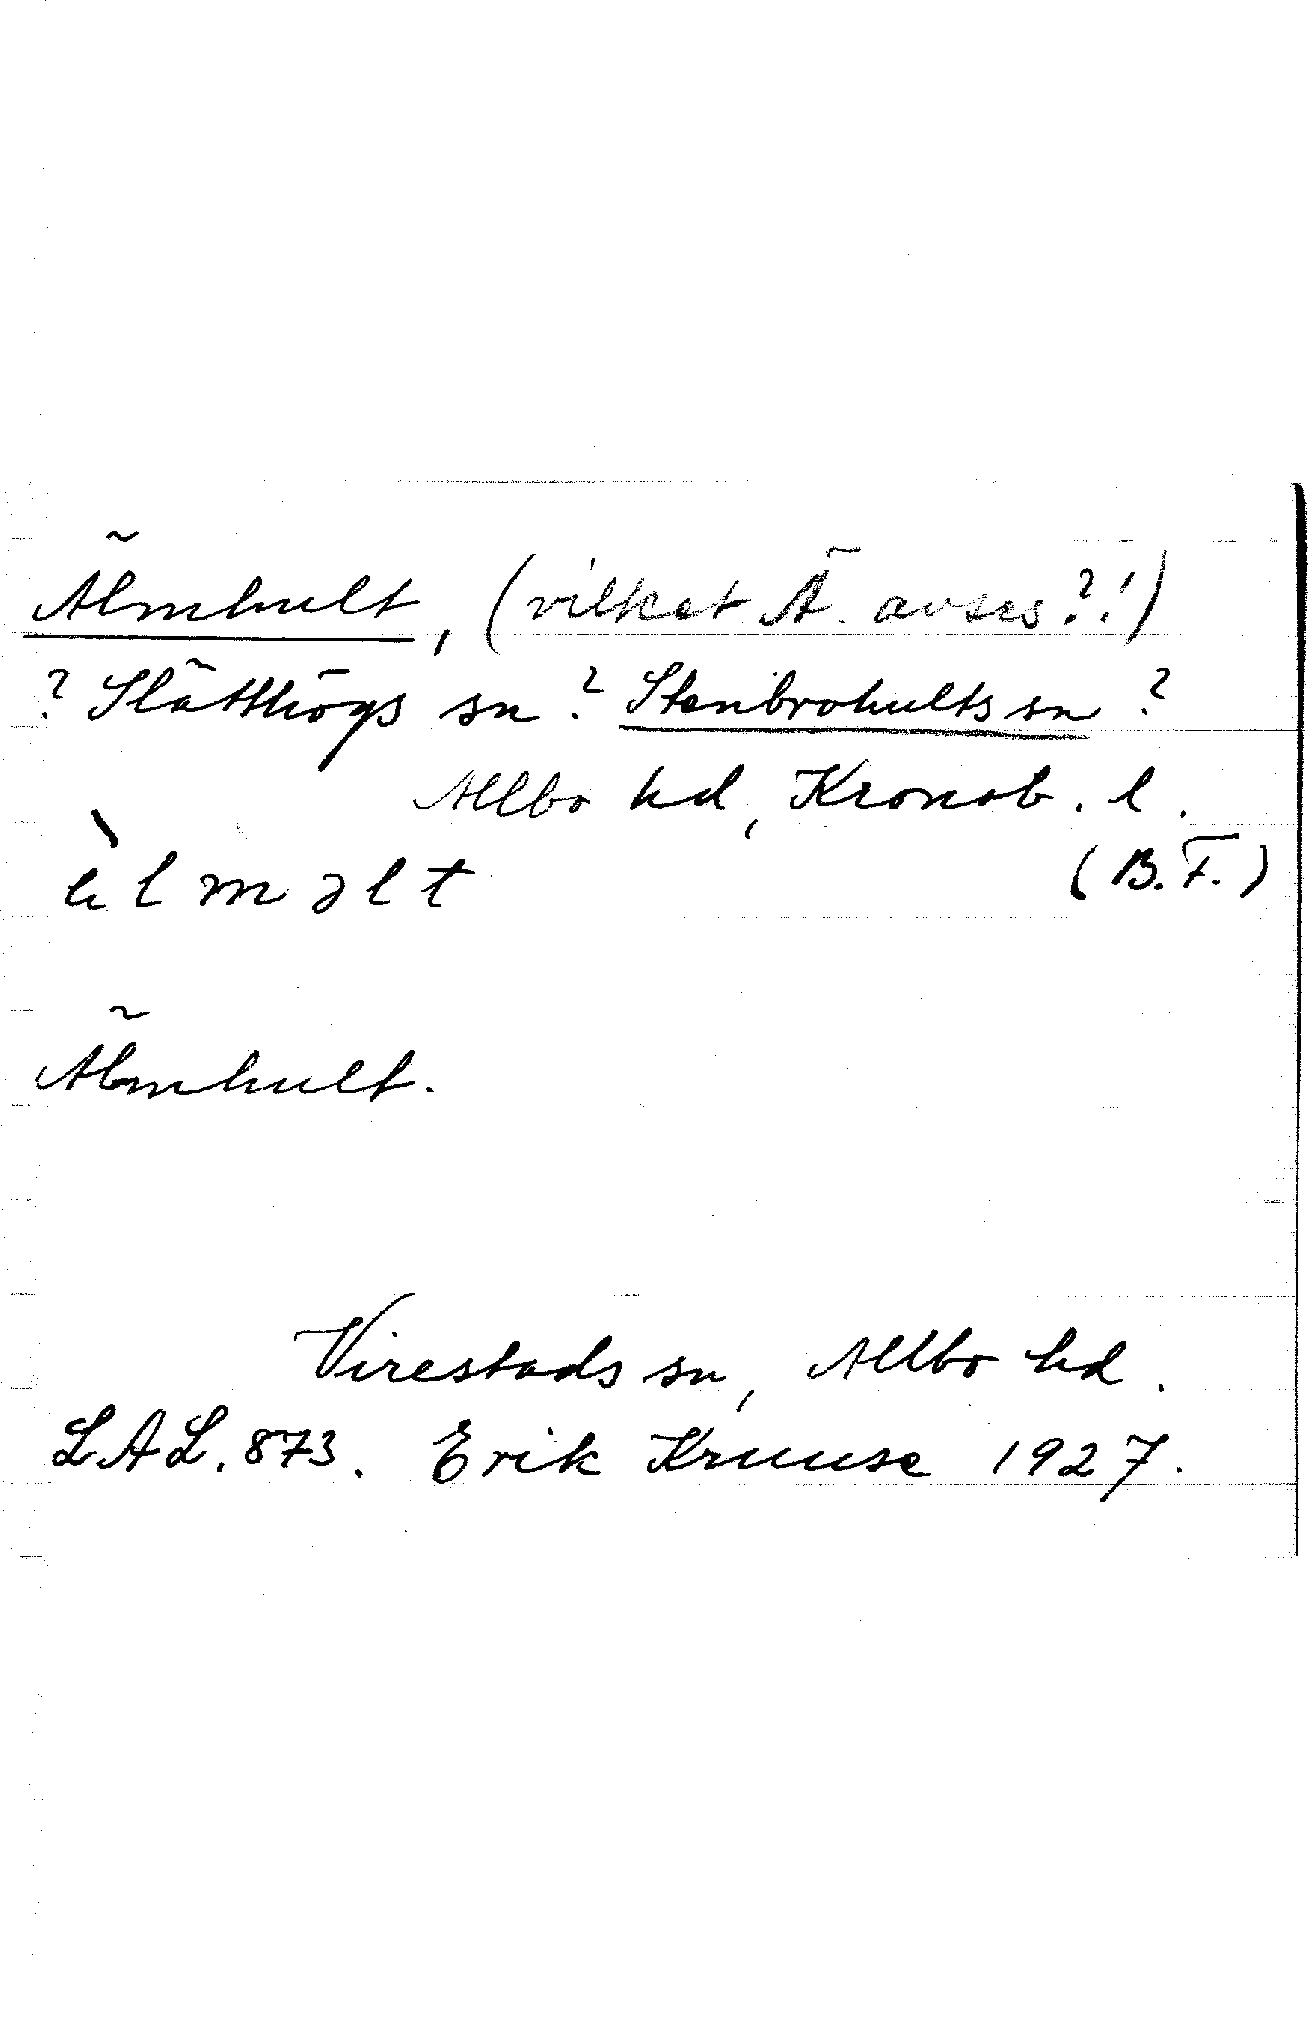 Älmhult, (vilket Ä. avses?!)
? Slätthögs sn ? Stenbrohults sn ?
Allbo hd, Kronob. l.
(B.F.)
l m ə l t
Älmhult.
Virestads sn, Allbo hd.
LAL. 873. Erik Kruuse 1927.